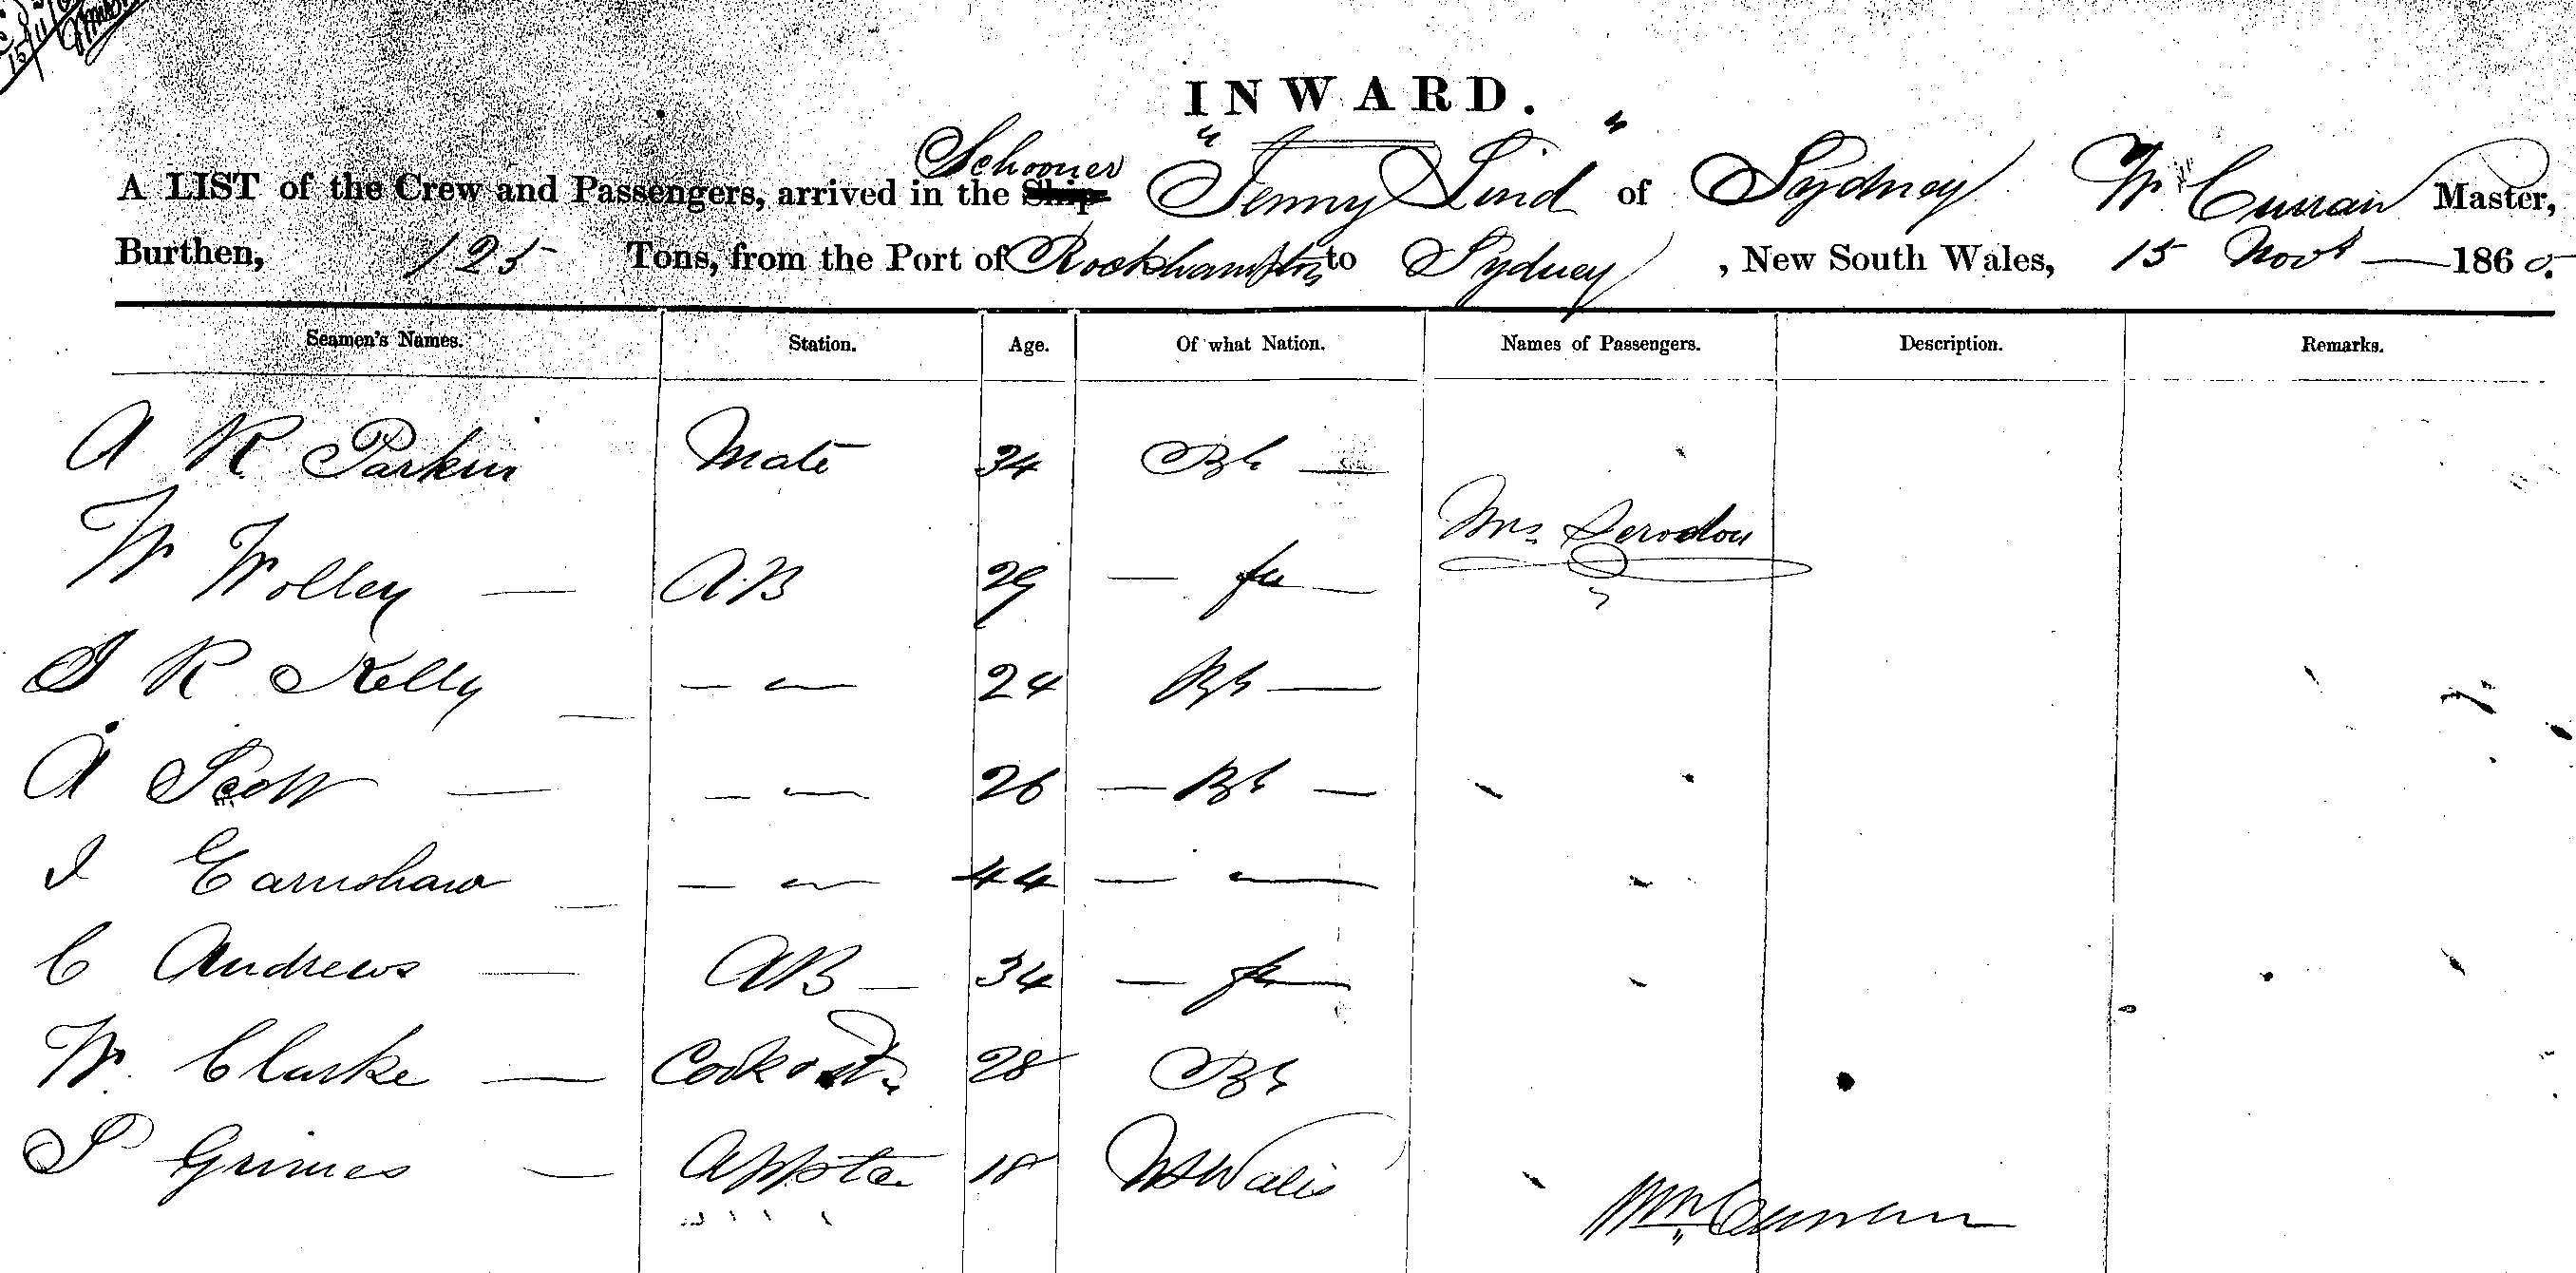 INWARD.
A LIST of the Crew and Passengers, arrived in the Ship Schooner "Jenny Lind" of Sydney Wm Curran Master,
Burthen, 125 Tons, from the Port of Rockhampton to Sydney, New South Wales, 15 Novr 1860.
Seamen's Names. Station. Age. Of what Nation. Names of Passengers. Description. Remarks.
A R Parkin Mate 34
Mrs
W Wolley — A.B 29
J R Kelly — — 24
A Scott — — — 26
J Earnshaw — — — 44 — —
C Andrews — AB — 34
W. Clarke — Cook & St. 28
P Grimes — Appte 18 NS Wales
Wm Curran